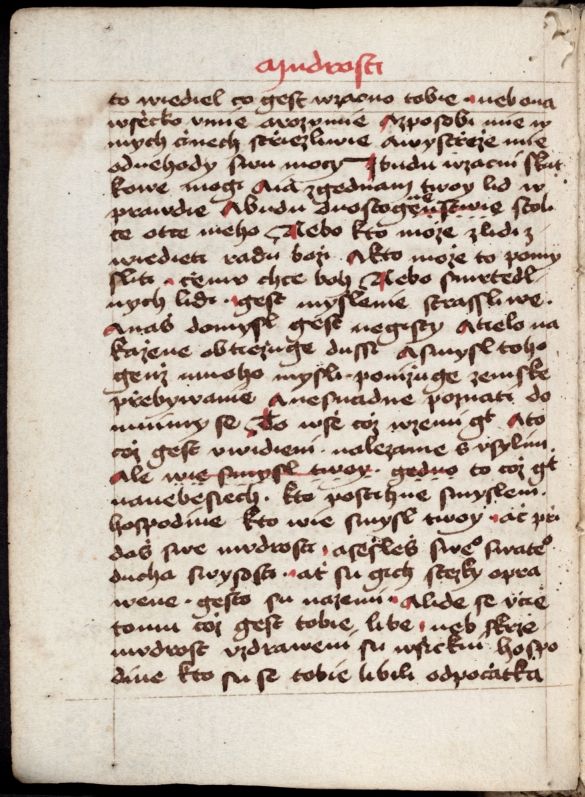 Mudrosti
to wiediel co gest wzacno tobie · neb ona
wsěcko vmie arozumie Azposobi mie w
mych činech střiezliwie awystřeže mie
odnehody swu moczy Ibudu wzacni skut
kowe mogi Aia zgednam twoy lid w
prawdie Abudu dnostogen stwie stoli
ce otce meho Nebo kto može zlidi z
wiedieti radu boži · Akto može to pomy
sliti · čemu chce boh Nebo smrtedl
nych lidi · gest myslenie strassliwe ·
Anaš domysl gest negisty Atielo na
kažene obtiežuge dussi Asmysl toho
genž mnoho mysli · ponižuge zemske
přebywanie Anesnadne poznati do
mnimy se To wsě což wzemi gt Ato
což gest vwidieni · nalezame s vsylim
Ale wie smysl twoy · gedno to což gt
nanebesiech · kto postihne smyslem ·
hospodine kto wie smysl twoy · ač při
daš swe mudrosti · asesleš sweº swateº
ducha swysosti · at su gich stezky opra
wene · gesto su nazemi · Alide se včie
tomu což gest tobie libe · neb skrze
mudrost vzdraweni su wsickni hospo
dine kto su se tobie libili odpočatka